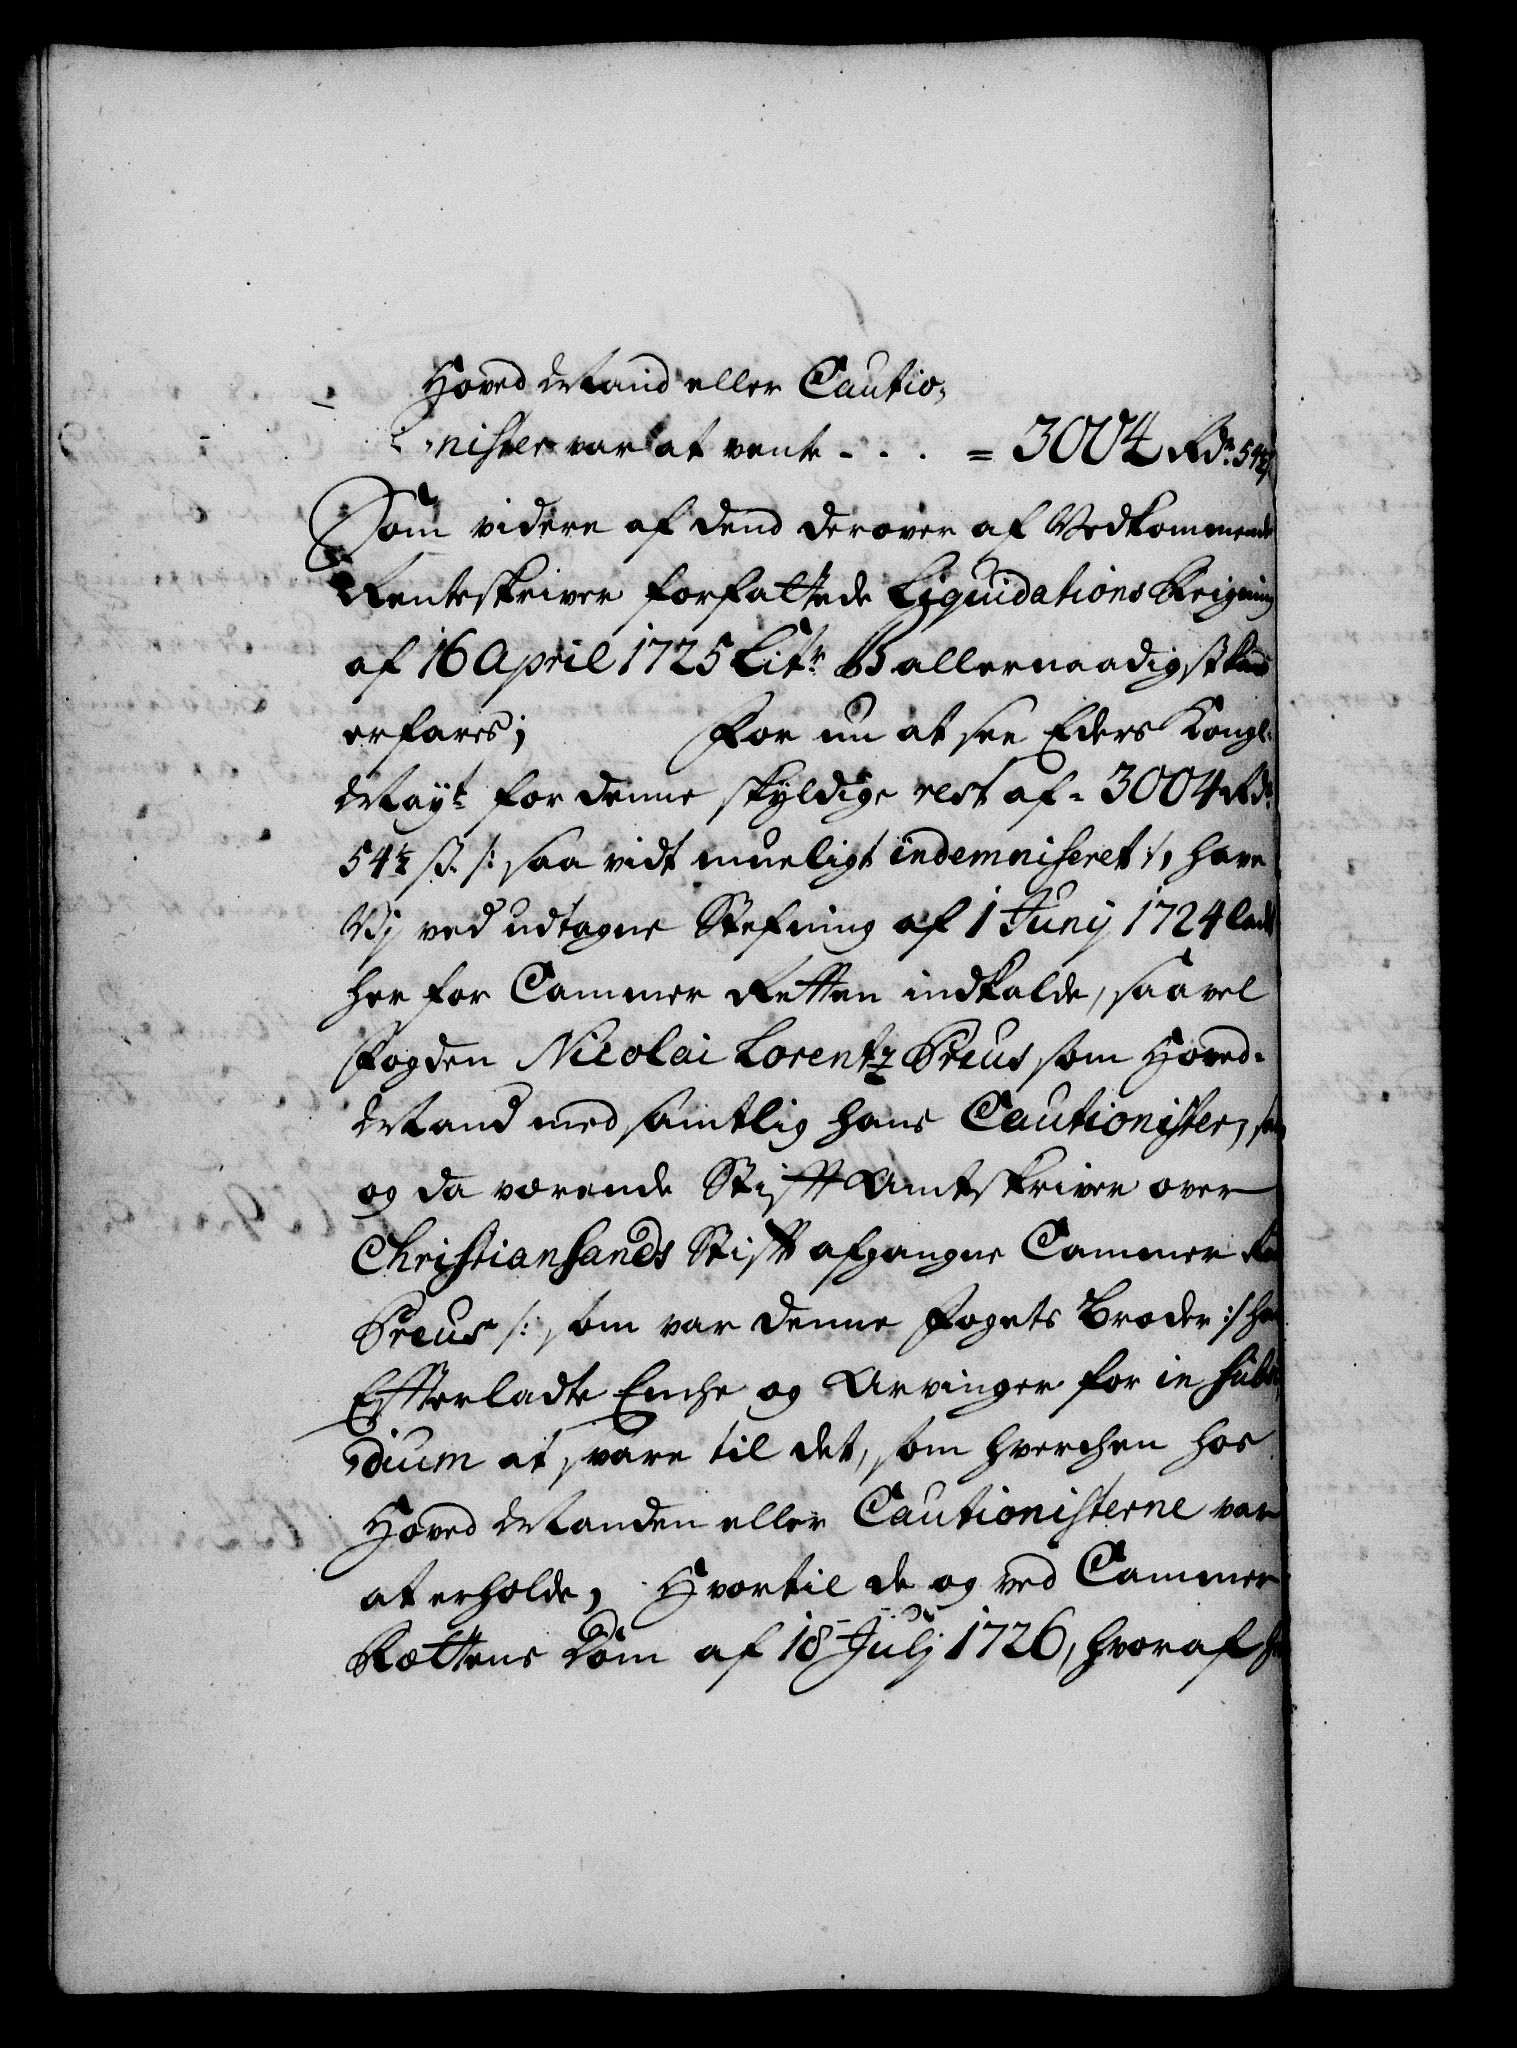 Hoved Mand eller Cautio,
nister var at vente - . . . = 3004 Rdr. 54½
Som videre af dend derover af Vedkommende
Renteskriver forfattede Liquidations Reigning
af 16 April 1725 Litr B allernaadigst kand
erfares; For nu at see Eders Kongl.
Mayt. for denne skyldige rest af = 3004 Rdr.
54½ ß. /: saa vidt mueligt indemniseret :/, have
Vj ved udtagne Stefning af 1 Junij 1724 ladt
her for Cammer Retten indkalde, saavel
Fogden Nicolai Lorentz Preus som Hoved-
Mand med samtlig hans Cautionister, som
og da værende Stifft Amtskriver over
Christiansands Stifft afgangne Cammer
Preus /: som var denne Fogets Broder :/ hans
Efterladte Enche og Arvinger for in subsi,
,dium at svare til det, som hverchen hos
Hoved Manden eller Cautionisterne var
at erholde, Hvortil de og ved Cammer
Rættens Dom af 18 Julj 1726, hvoraf